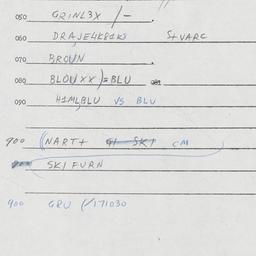 050 GRINL3X /-
060 DRAJE4K81K3 S+VARC
070 BROWN
080 BLOWXX )=BLU
090 H1MLBLU VS BLU
700 (NART+ GI SKI CM
SKIFURN
900 GRU (/171030